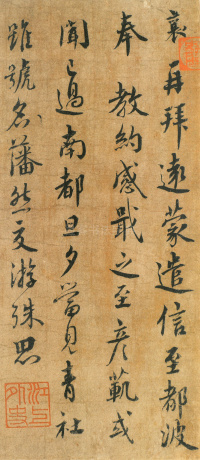 襄再拜遠蒙遣信至都波
奉教約感戢之至彥範或
聞已過南都旦夕當見青社
雖號名藩然交游殊思